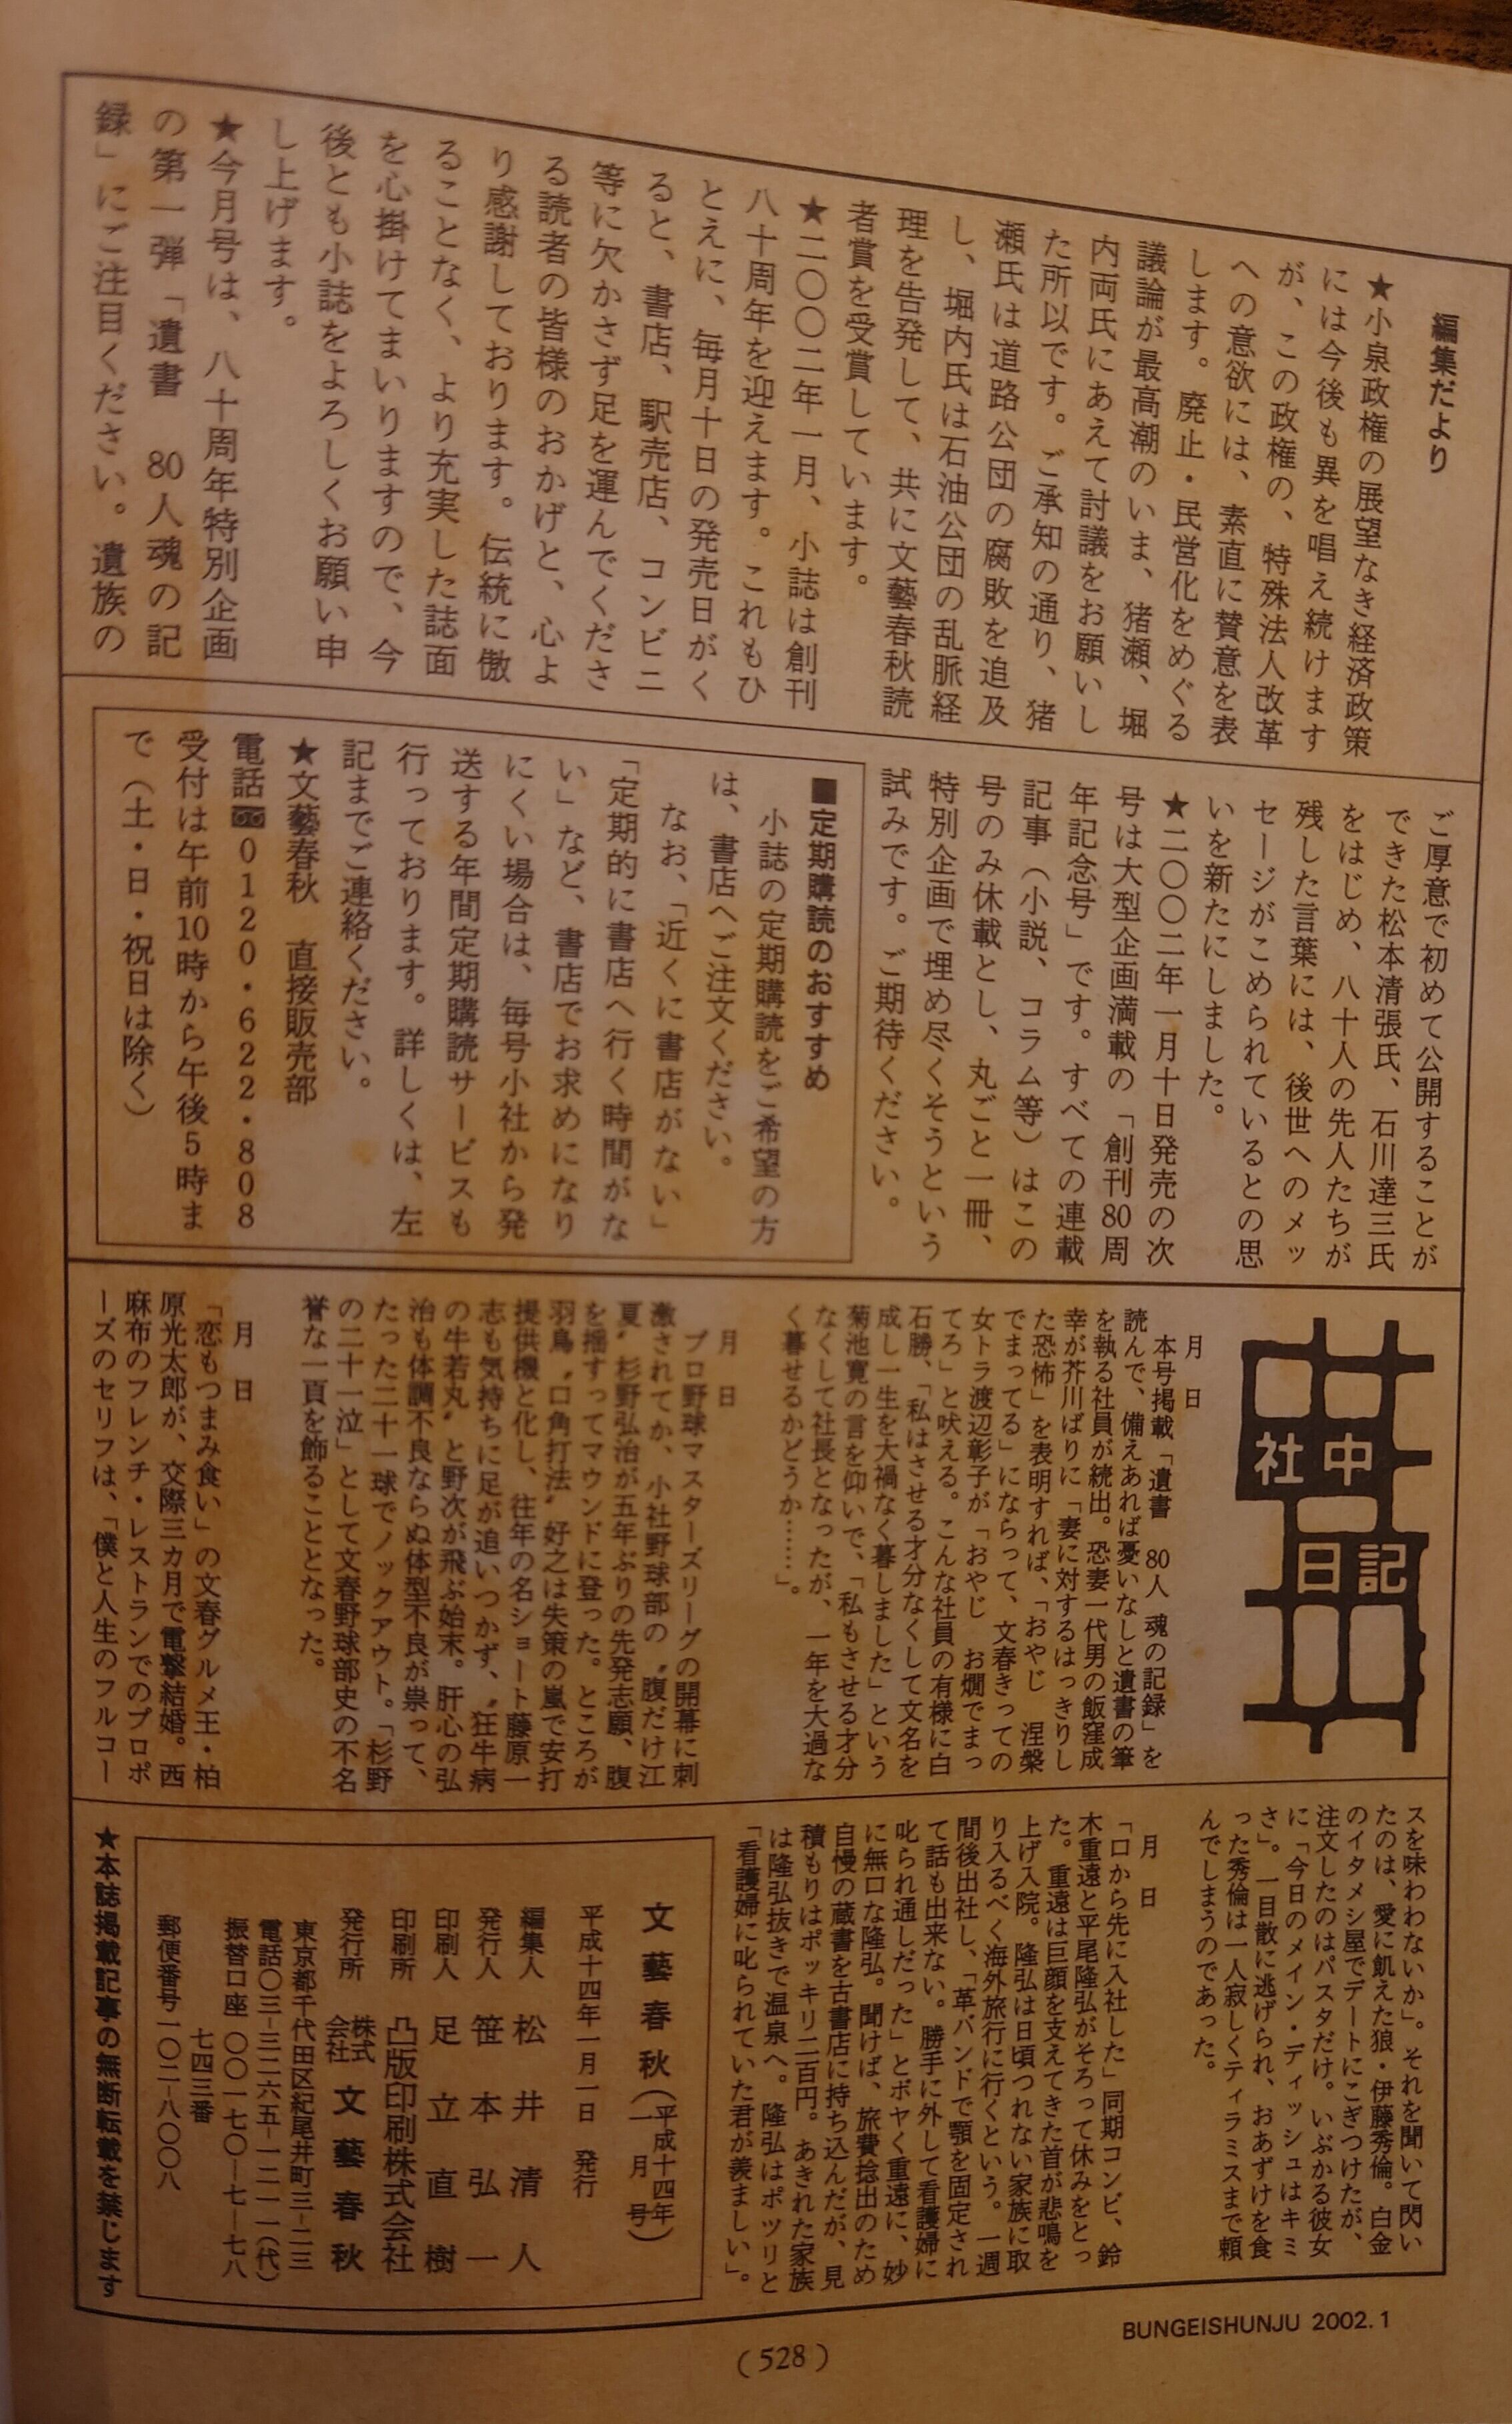 編集だより
★小泉政権の展望なき経済政策
には今後も異を唱え続けます
が、この政権の、特殊法人改革
への意欲には、素直に賛意を表
します。廃止・民営化をめぐる
議論が最高潮のいま、猪瀬、堀
内両氏にあえて討議をお願いし
た所以です。ご承知の通り、猪
瀬氏は道路公団の腐敗を追及
し、堀内氏は石油公団の乱脈経
理を告発して、共に文藝春秋読
者賞を受賞しています。
★二〇〇二年一月、小誌は創刊
八十周年を迎えます。これもひ
とえに、毎月十日の発売日がく
ると、書店、駅売店、コンビニ
等に欠かさず足を運んでくださ
る読者の皆様のおかげと、心よ
り感謝しております。伝統に傲
ることなく、より充実した誌面
を心掛けてまいりますので、今
後とも小誌をよろしくお願い申
し上げます。
★今月号は、八十周年特別企画
の第一弾「遺書 80人魂の記
録」にご注目ください。遺族の
ご厚意で初めて公開することが
できた松本清張氏、石川達三氏
をはじめ、八十人の先人たちが
残した言葉には、後世へのメッ
セージがこめられているとの思
いを新たにしました。
★二〇〇二年一月十日発売の次
号は大型企画満載の「創刊80周
年記念号」です。すべての連載
記事（小説、コラム等）はこの
号のみ休載とし、丸ごと一冊、
特別企画で埋め尽くそうという
試みです。ご期待ください。
■定期購読のおすすめ
小誌の定期購読をご希望の方
は、書店へご注文ください。
なお、「近くに書店がない」
「定期的に書店へ行く時間がな
い」など、書店でお求めになり
にくい場合は、毎号小社から発
送する年間定期購読サービスも
行っております。詳しくは、左
記までご連絡ください。
★文藝春秋 直接販売部
電話0120・622・808
受付は午前10時から午後5時ま
で（土・日・祝日は除く）
社中
日記
月 日
本号掲載「遺書 80人 魂の記録」を
読んで、備えあれば憂いなしと遺書の筆
を執る社員が続出。恐妻一代男の飯窪成
幸が芥川ばりに「妻に対するはっきりし
た恐怖」を表明すれば、「おやじ 涅槃
でまってる」にならって、文春きっての
女トラ渡辺彰子が「おやじ お燗でまっ
てろ」と吠える。こんな社員の有様に白
石勝、「私はさせる才分なくして文名を
成し一生を大禍なく暮しました」という
菊池寛の言を仰いで、「私もさせる才分
なくして社長となったが、一年を大過な
く暮せるかどうか……」。
月 日
プロ野球マスターズリーグの開幕に刺
激されてか、小社野球部の〝腹だけ江
夏〟杉野弘治が五年ぶりの先発志願、腹
を揺すってマウンドに登った。ところが
羽鳥〝口角打法〟好之は失策の嵐で安打
提供機と化し、往年の名ショート藤原一
志も気持ちに足が追いつかず、〝狂牛病
の牛若丸〟と野次が飛ぶ始末。肝心の弘
治も体調不良ならぬ体型不良が祟って、
たった二十一球でノックアウト。「杉野
の二十一泣」として文春野球部史の不名
誉な一頁を飾ることとなった。
月 日
「恋もつまみ食い」の文春グルメ王・柏
原光太郎が、交際三カ月で電撃結婚。西
麻布のフレンチ・レストランでのプロポ
ーズのセリフは、「僕と人生のフルコー
スを味わわないか」。それを聞いて閃い
たのは、愛に飢えた狼・伊藤秀倫。白金
のイタメシ屋でデートにこぎつけたが、
注文したのはパスタだけ。いぶかる彼女
に「今日のメイン・ディッシュはキミ
さ」。一目散に逃げられ、おあずけを食
った秀倫は一人寂しくティラミスまで頼
んでしまうのであった。
月 日
「口から先に入社した」同期コンビ、鈴
木重遠と平尾隆弘がそろって休みをとっ
た。重遠は巨顔を支えてきた首が悲鳴を
上げ入院。隆弘は日頃つれない家族に取
り入るべく海外旅行に行くという。一週
間後出社し、「革バンドで顎を固定され
て話も出来ない。勝手に外して看護婦に
叱られ通しだった」とボヤく重遠に、妙
に無口な隆弘。聞けば、旅費捻出のため
自慢の蔵書を古書店に持ち込んだが、見
積もりはポッキリ二百円。あきれた家族
は隆弘抜きで温泉へ。隆弘はポツリと
「看護婦に叱られていた君が羨ましい」。
文藝春秋（平成十四年一月号）
平成十四年一月一日 発行
編集人 松井清人
発行人 笹本弘一
印刷人 足立直樹
印刷所 凸版印刷株式会社
発行所 株式会社 文藝春秋
東京都千代田区紀尾井町三-二三
電話〇三-三二六五-一二一一(代)
振替口座 〇〇一七〇-七-七八
七四三番
郵便番号一〇二-八〇〇八
★本誌掲載記事の無断転載を禁じます
BUNGEISHUNJU 2002.1
(528)